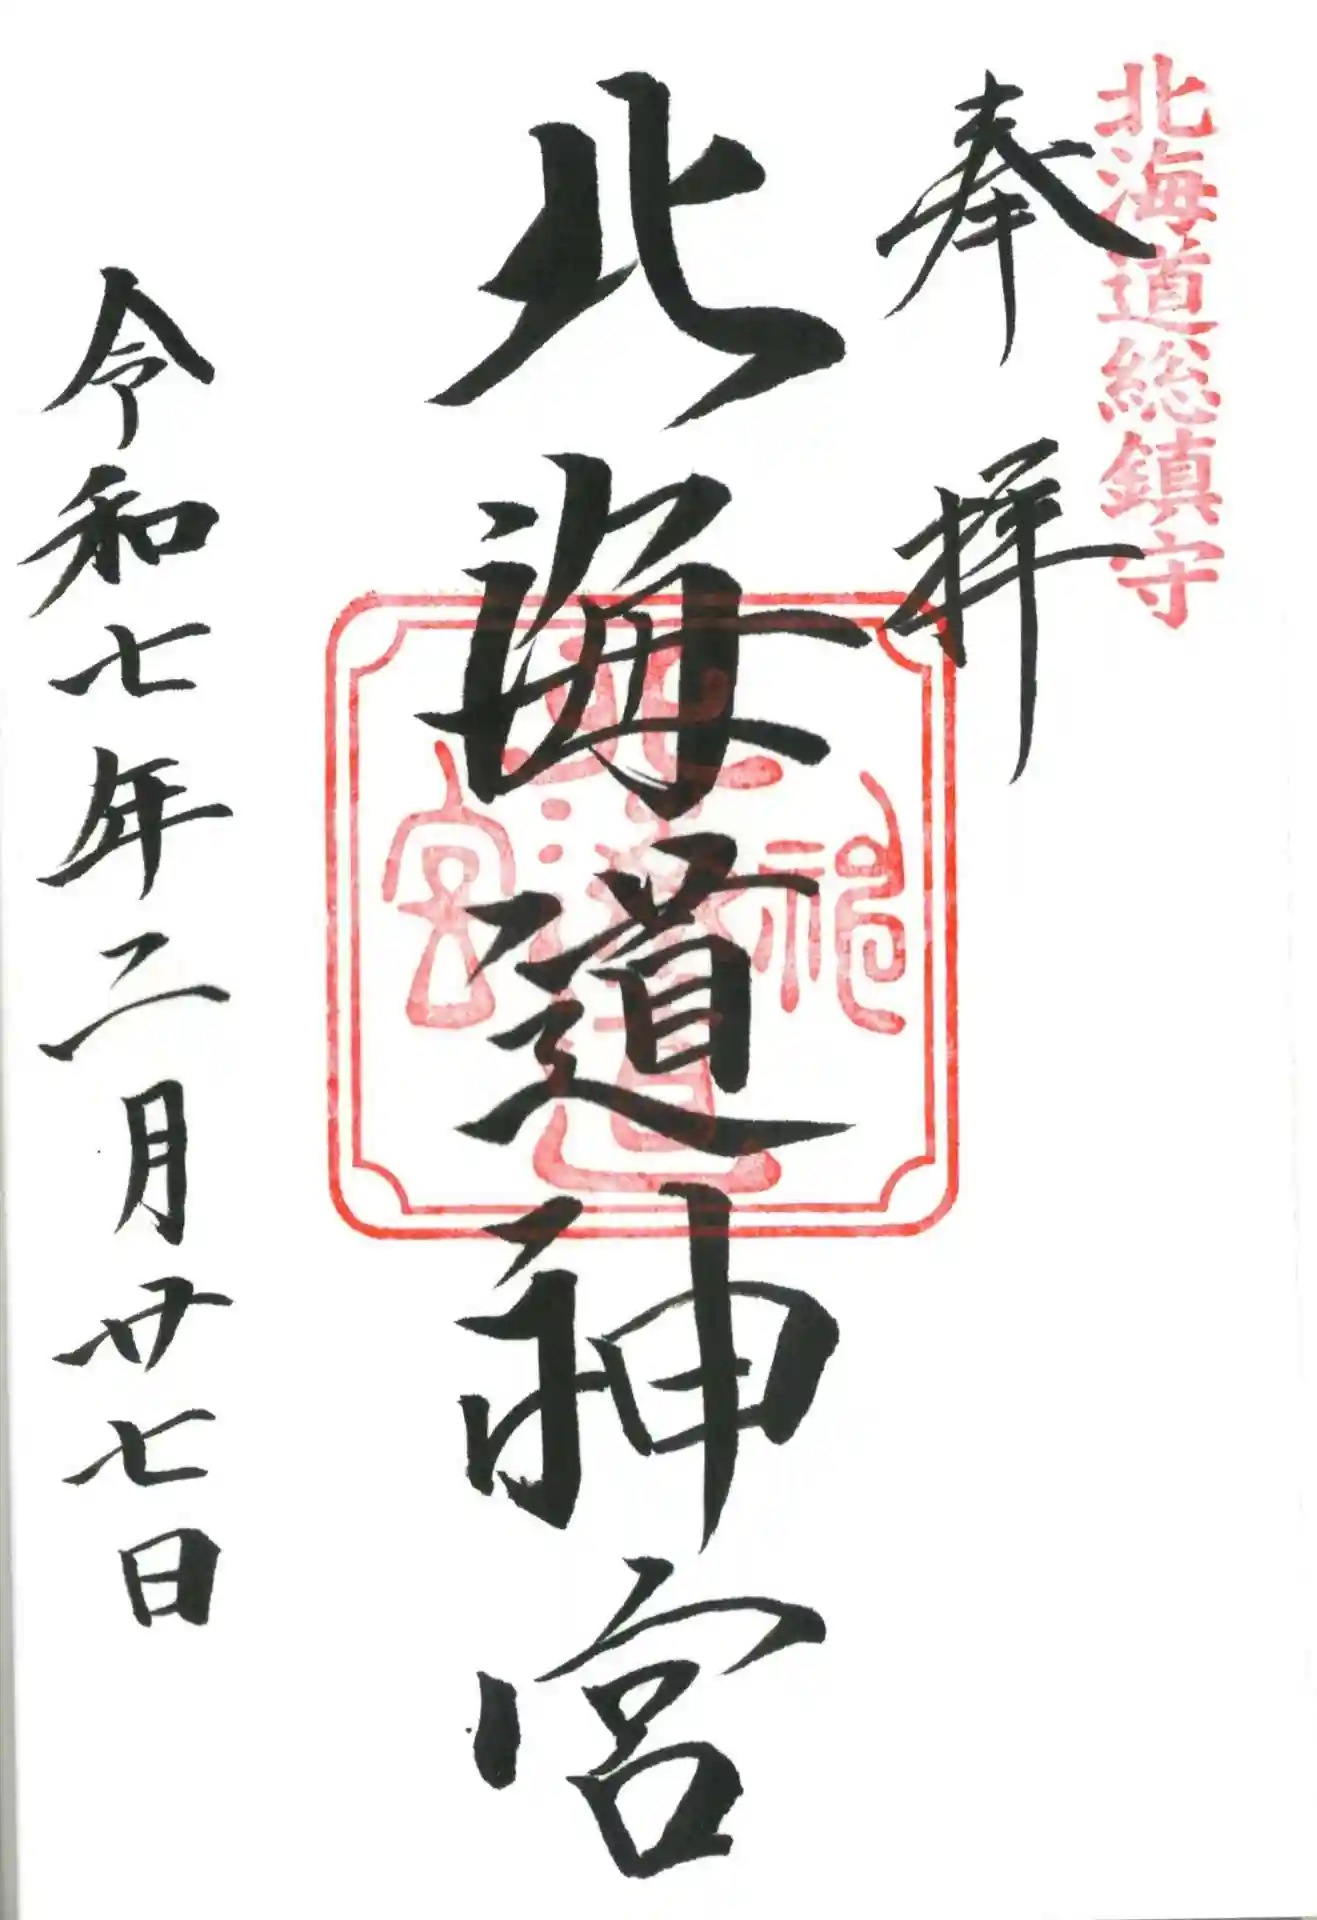 北海道総鎮守
奉拝
北海道神宮
北海道神宮
令和七年二月廿七日